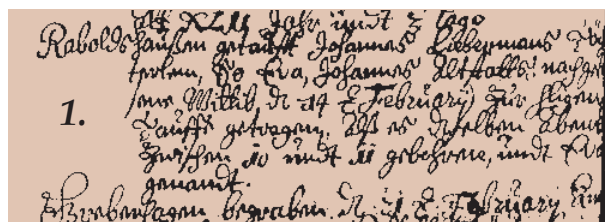 alt XLII Jahr undt 2 tage
Raboldshaußen getaufft Johannes Liebermans Töch
terlein, So Eva, Johannes Altstatts nachge
sene Wittib d 14 t February zur heiligen
Tauffe getragen, alß es deselben abent
Zwischen 10 undt 11 gebohren, undt Eva
genandt.
1.
begraben d 21 t February